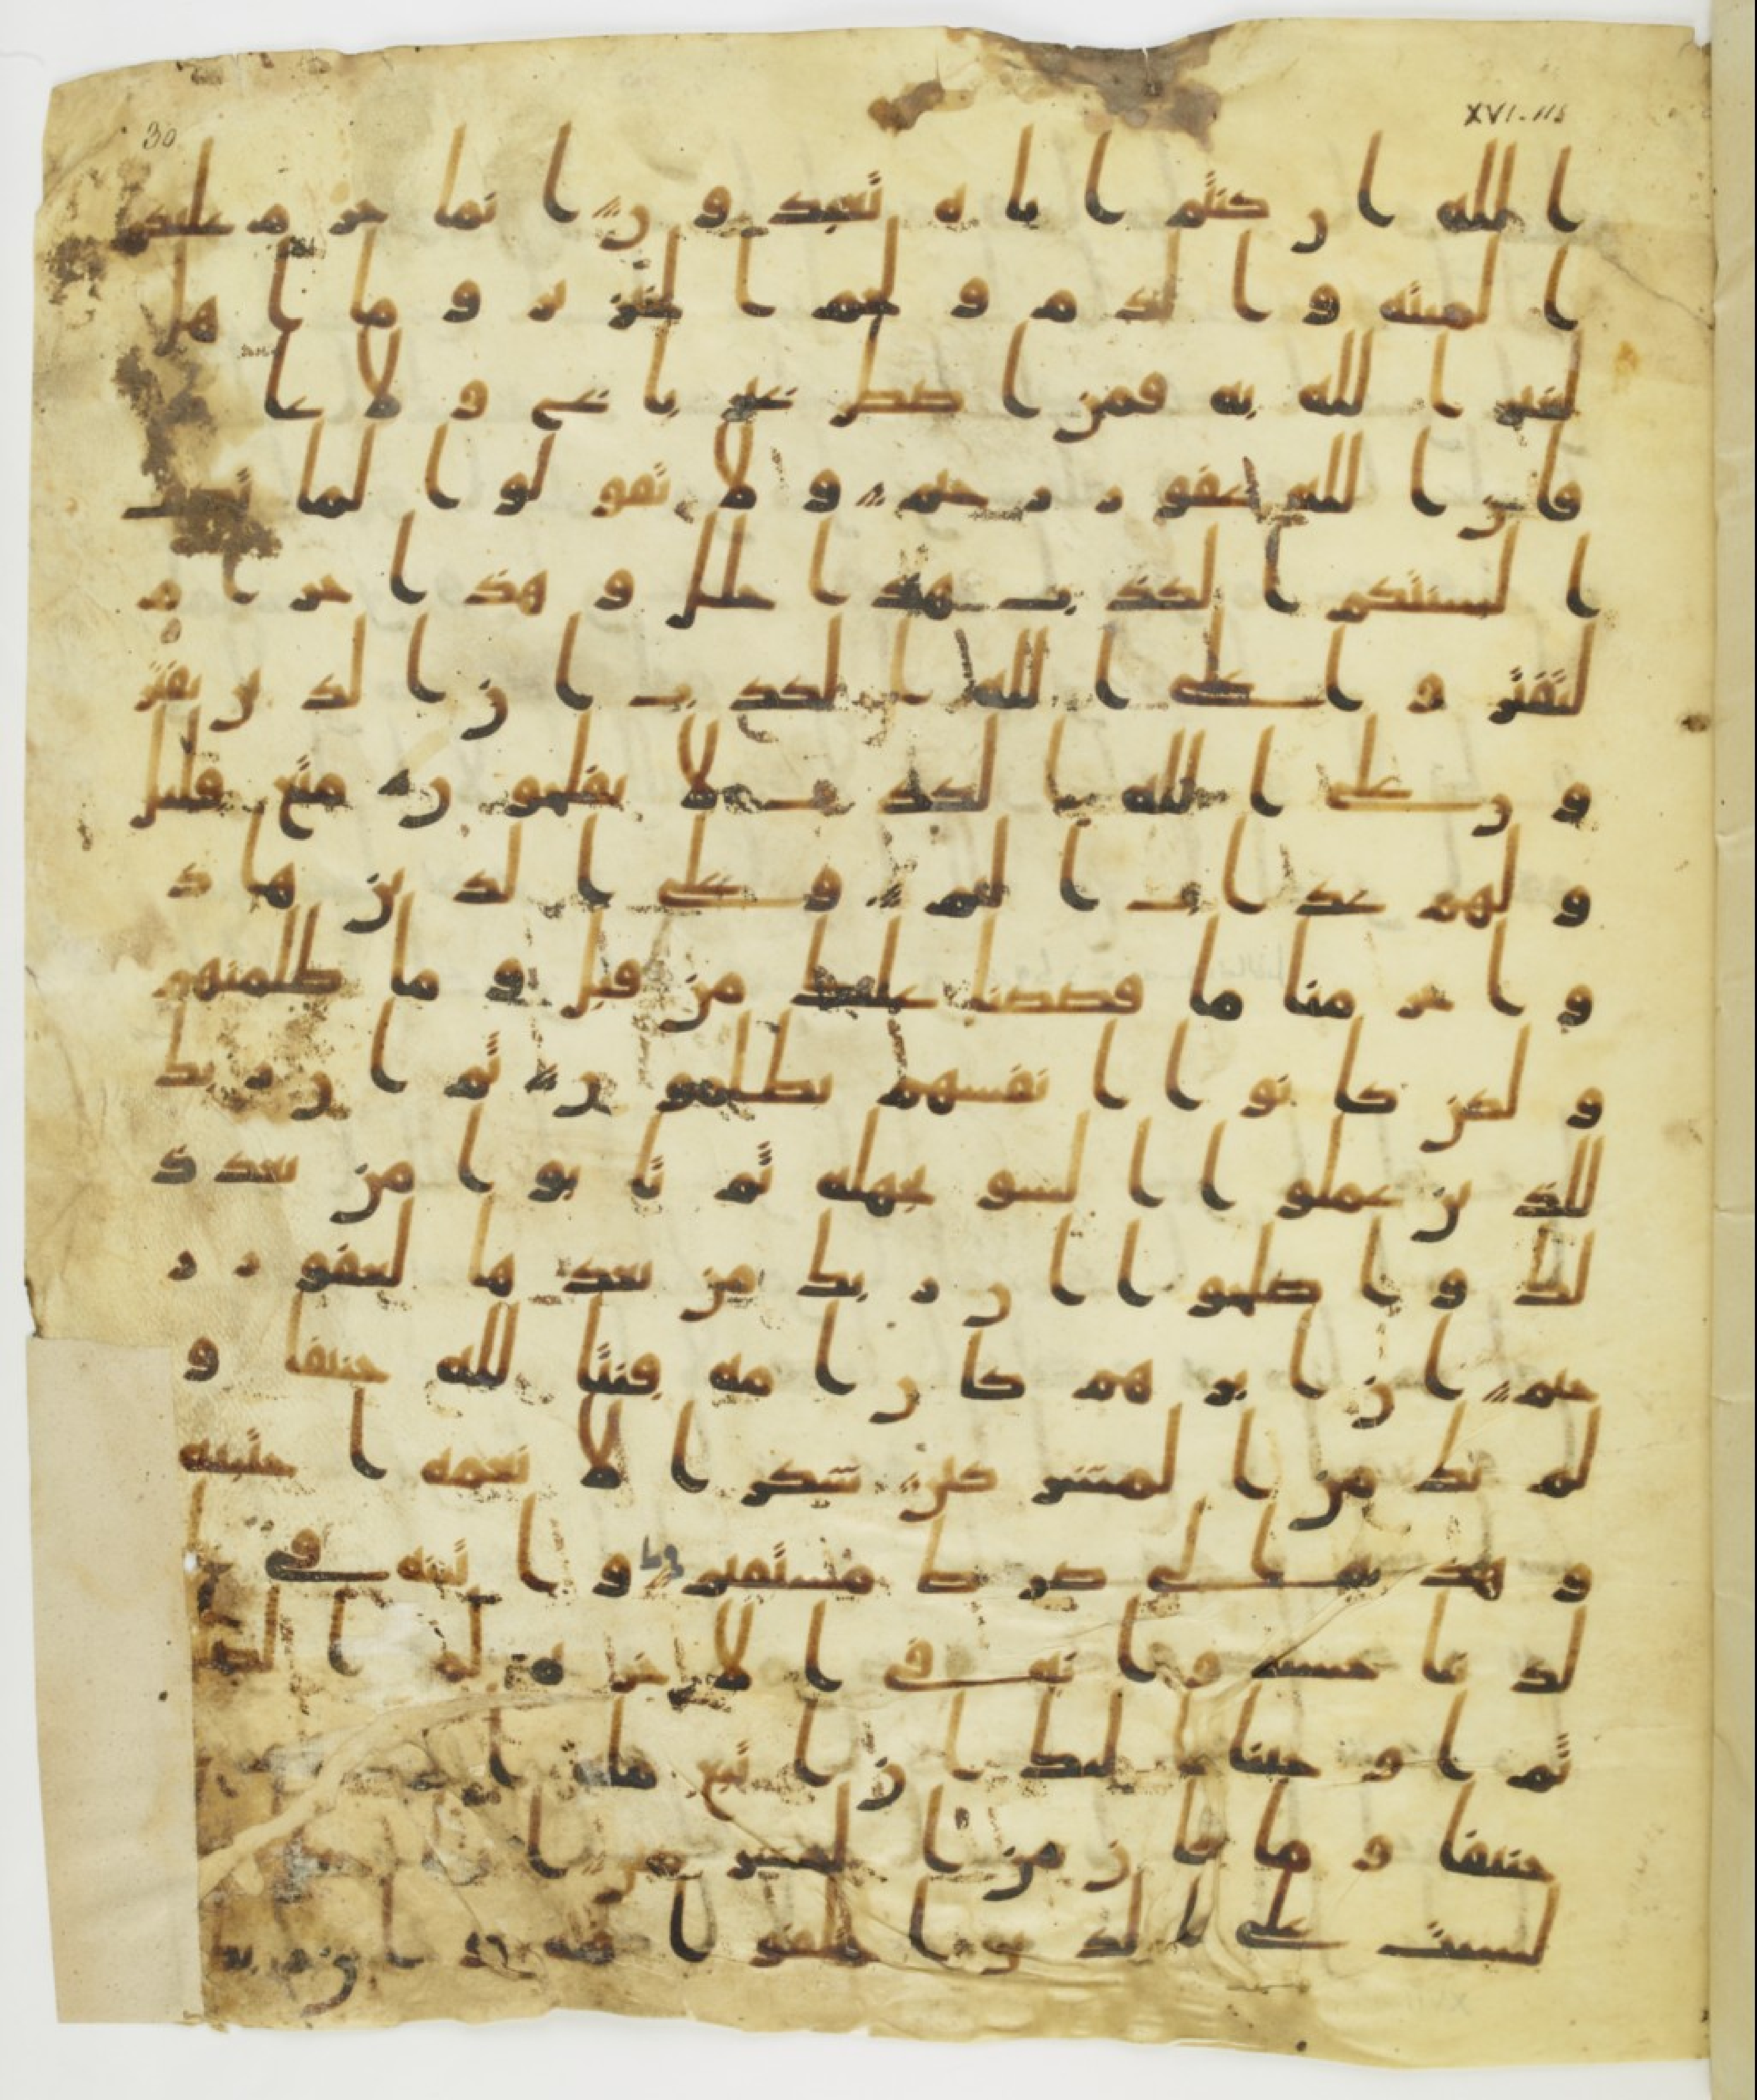 30 XVI-115
الله ان كنتم اياه تعبدون انما حرم عليكم
الميته والدم ولحم الخنزير وما اهل
لغير الله به فمن اضطر غير باغى ولا عا
فان الله غفور رحيم ولا تقولوا لما تصف
السنتكم الكذب هذا حلل وهذا حرام
لتفتروا على الله الكذب ان الذين يفتر
ون على الله الكذب لا يفلحون متع قليل
ولهم عذاب اليم وعلى الذين هاد
وا حرمنا ما قصصنا عليك من قبل وما ظلمنهم
ولكن كانوا انفسهم يظلمون ثم ان ربك
للذين عملوا السو بجهله ثم تابوا من بعد ذ
لك واصلحوا ان ربك من بعدها لغفور ر
حيم ان ابرهم كان امه قنتا لله حنيفا و
لم يك من المشركين شكرا لانعمه اجتبيه
وهديه الى صرط مستقيم واتينه في
لدنيا حسنه وانه في الاخره لمن
ثم اوحينا اليك ان اتبع مله
حنيفا وما كان من المشركين
لسبت على الذين اختلفوا فيه وان ربك